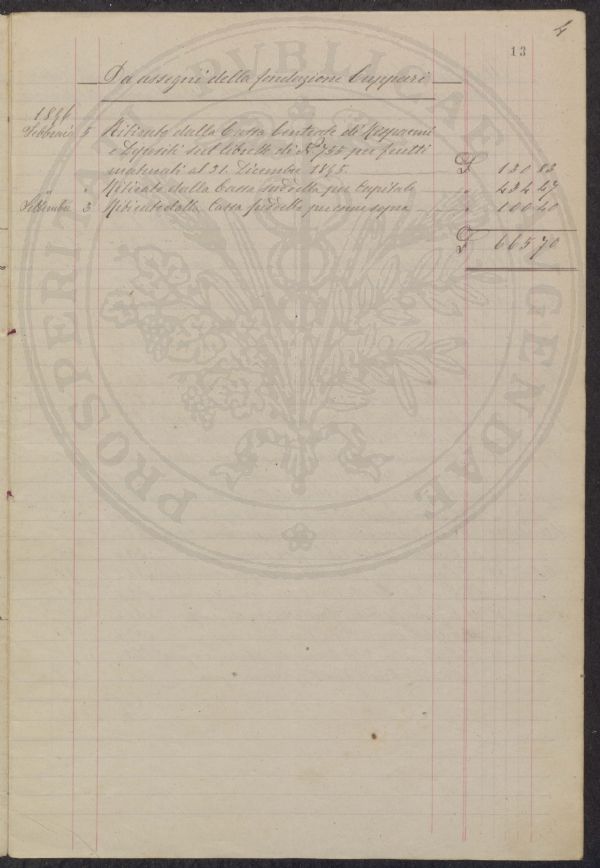 4
13
Da assegni della fondazione Cuppari
1896
Febbraio 5 Ritirato dalla Cassa Centrale di Risparmi
e Depositi sul libretto di N° 755 per frutti
maturati al 31. Dicembre 1895. £ 130 83
" " Ritirato dalla Cassa suddetta per Capitale " 434 47
Settembre 3 Ritirato dalla Cassa suddetta per come sopra " 100 40
£ 665 70
PROSPERITATI PUBLICAE AUGENDAE